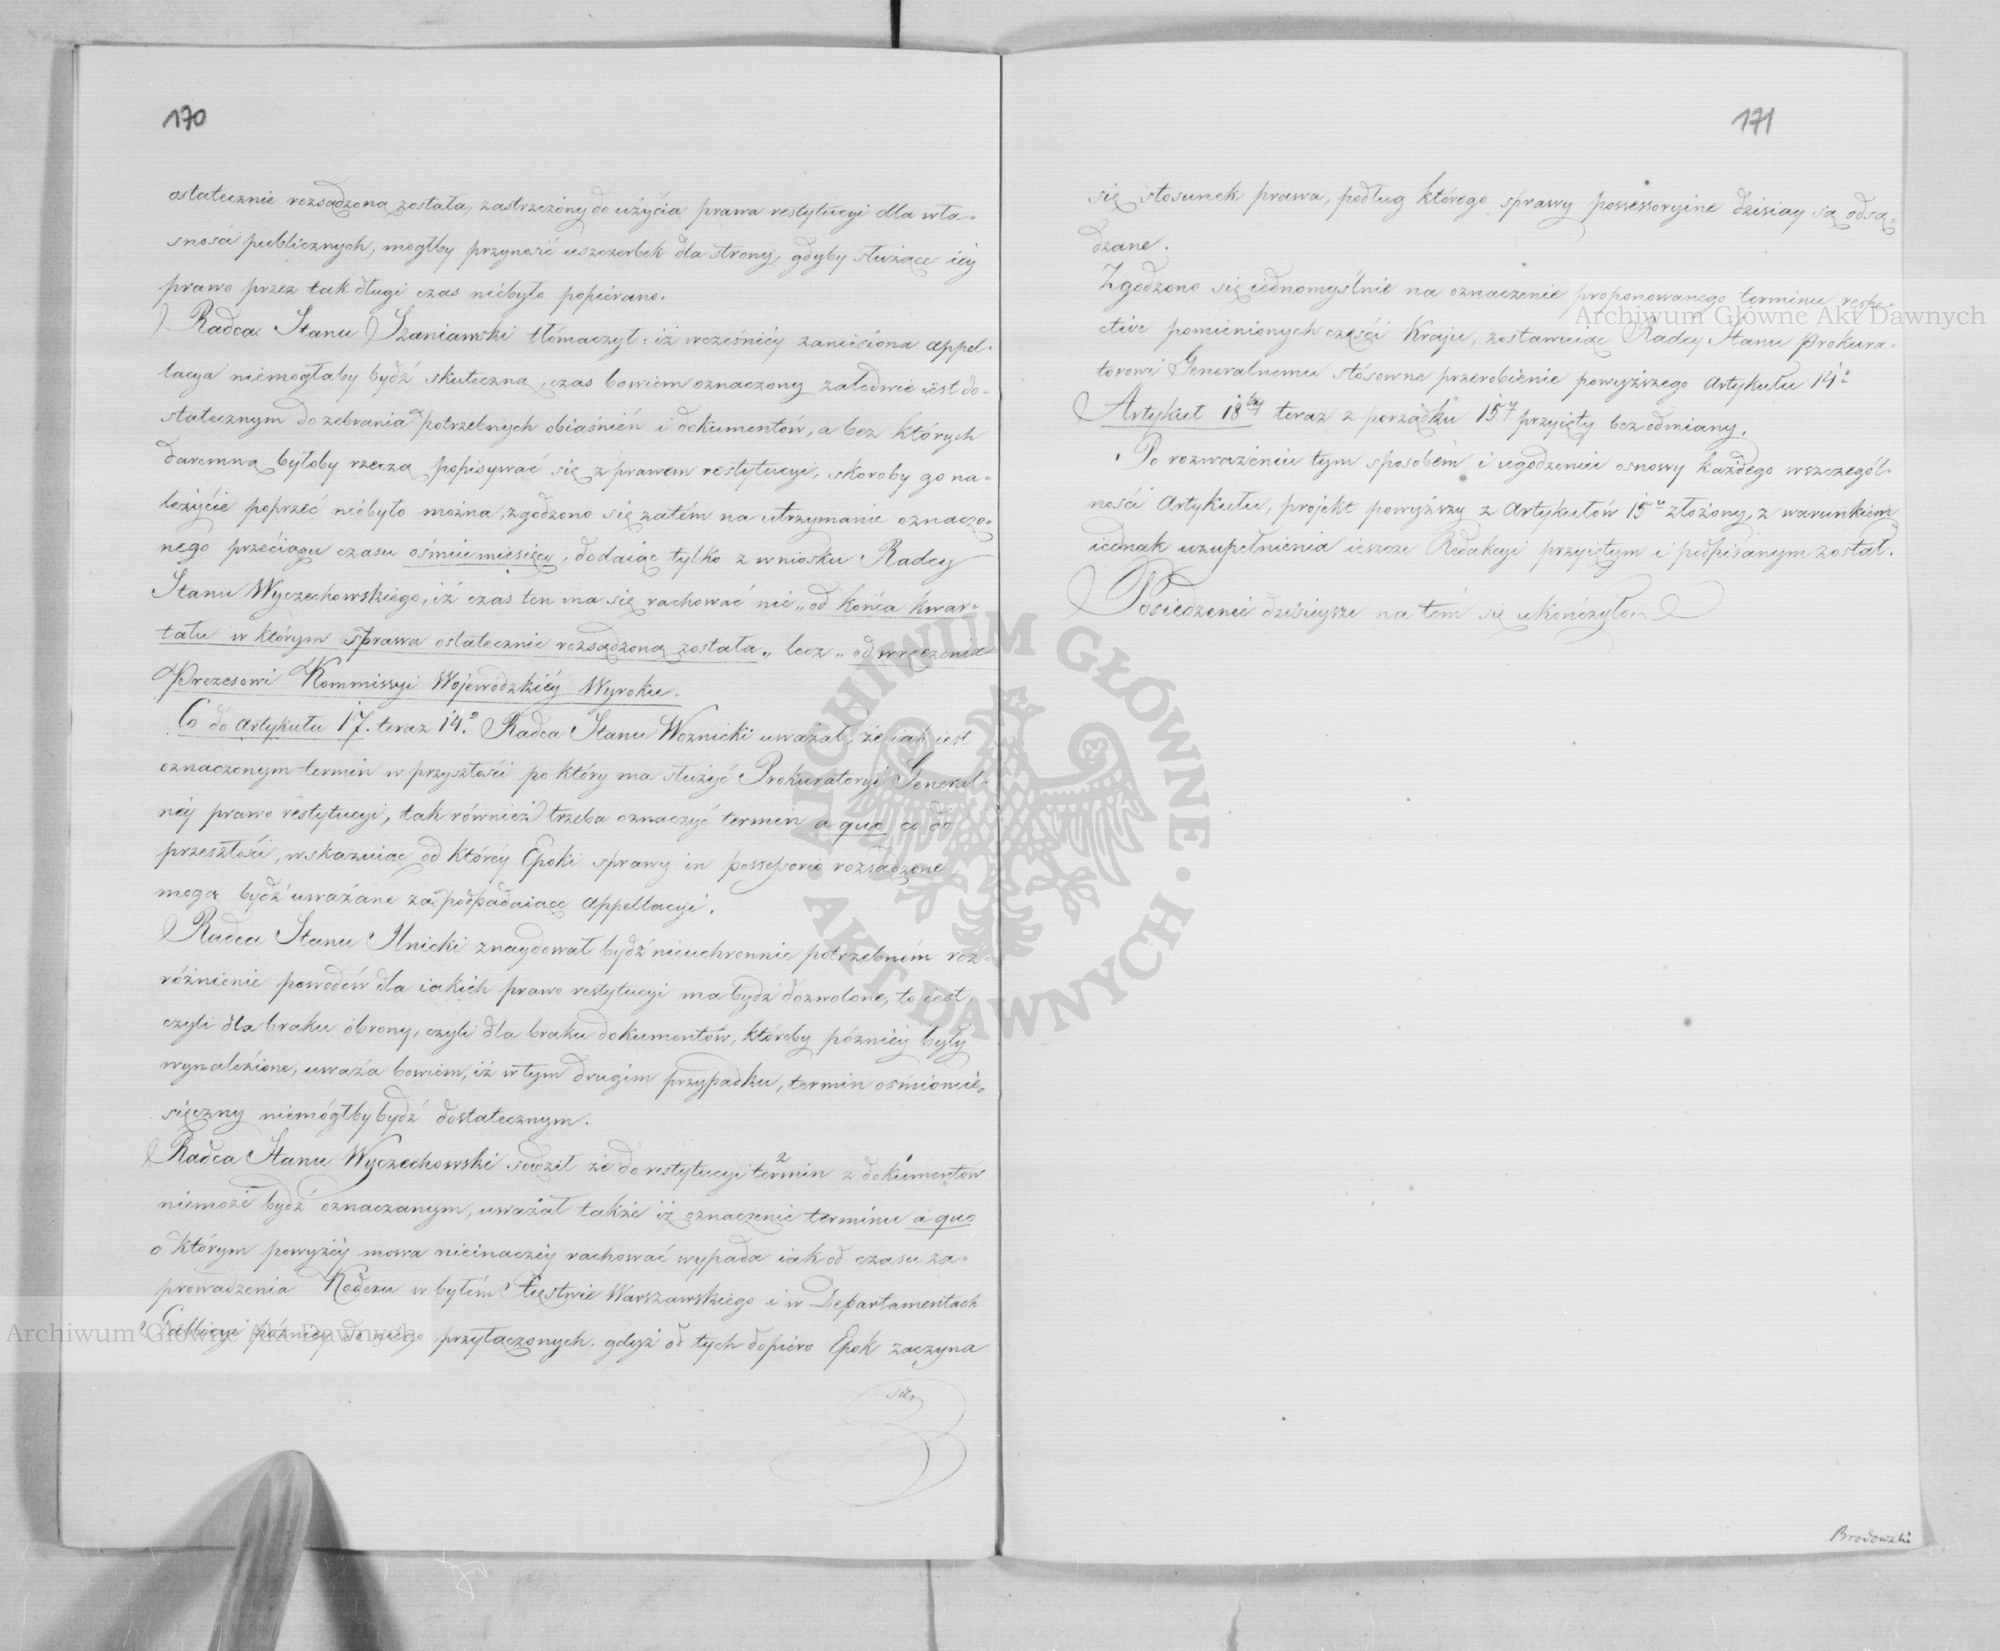 170
ostatecznie rozsądzoną została, zastrzeżony do użycia prawa restytucyi dla wła-
sności publicznych, mogłby przynosić uszczerbek dla strony, gdyby służące iéy
prawo przez tak długi czas niebyło popiérane.
Radca Stanu Szaniawski tłómaczył: iż wcześniéy zaniesiona appel-
lacya niemogłaby bydź skuteczną, czas bowiem oznaczony zaledwie iest do-
statecznym do zebrania potrzebnych obiaśnień i dokumentow, a bez których
daremną byłoby rzeczą popisywać się z prawem restytucyi, skoroby go na-
leżycie poprzéć niebyło można, zgodzono się zatém na utrzymanie oznaczo-
nego przeciągu czasu ośmiu miesięcy, dodaiąc tylko z wniosku Radcy
Stanu Wyczechowskiego, iż czas ten ma się rachować nie „od końca kwar-
tału w którym sprawa ostatecznie rozsądzoną została„ lecz „od wręczenia
Prezesowi Kommissyi Wojewódzkiéy Wyroku.
Co do artykułu 17. teraz 14.º Radca Stanu Woznicki uważał, że iak iest
oznaczonym termin w przyszłości po który ma służyć Prokuratoryi General-
néy prawo restytucyi, tak również trzeba oznaczyć termin a quo co do
przeszłości, wskazuiąc od któréy Epoki sprawy in possessorio rozsądzone
mogą bydź uważane za podpadaiące appellacyi.
Radca Stanu Ilnicki znaydował bydź nieuchronnie potrzebném roz-
różnienie powodów dla iakich prawo restytucyi ma bydź dozwolone, to iest,
czyli dla braku obrony, czyli dla braku dokumentów, któreby późniéy były
wynalezione, uważa bowiem, iż w tym drugim przypadku, termin ośmiomie-
sięczny niemógłby bydź dostatecznym.
Radca Stanu Wyczechowski sądził że do restytucyi termin z dokumentów
niemoże bydź oznaczanym, uważał także iż oznaczenie terminu a quo
o którym powyżéy mowa nieinaczéy rachować wypada iak od czasu za-
prowadzenia Kodexu w byłém Xięstwie Warszawskiego i w Departamentach
Gallicyi późniéy do niego przyłączonych, gdyż od tych dopiéro Epok zaczyna
się
171
się stosunek prawa, podług którego sprawy possessoryine dzisiay są odsą-
dzane.
Zgodzono się iednomyślnie na oznaczenie proponowanego terminu respe-
ctive pomienionych części Kraju, zostawuiąc Radcy Stanu Prokura-
torowi Generalnemu stósowne przerobienie powyższego Artykułu 14º
Artykuł 18ty teraz z porządku 15y przyięty bez odmiany.
Po rozważeniu tym sposobem i ugodzeniu osnowy każdego w szczegól-
ności Artykułu, projekt powyższy z Artykułów 15u złożony, z warunkiem
iednak uzupełnienia ieszcze Redakcyi przyiętym i podpisanym został.
Posiedzenie dzisieysze na tém się ukończyło.
Brodowski
Archiwum Główne Akt Dawnych
Archiwum Główne Akt Dawnych
ARCHIWUM GŁÓWNE
AKT DAWNYCH